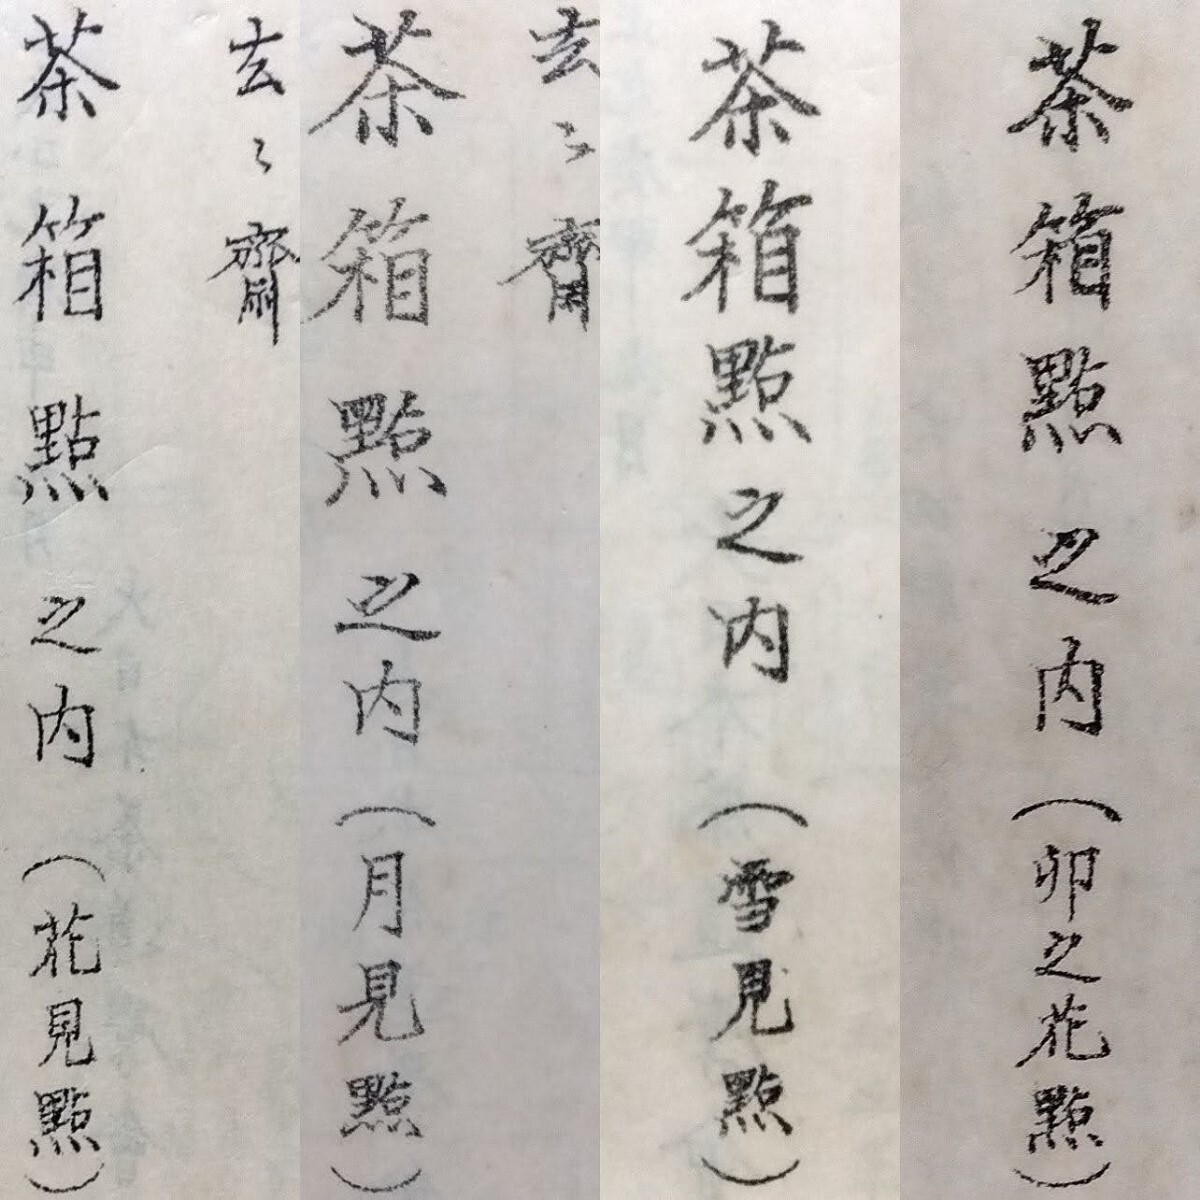 玄〻齋
茶箱點之内（花見點）
玄〻齋
茶箱點之内（月見點）
茶箱點之内（雪見點）
茶箱點之内（卯之花點）